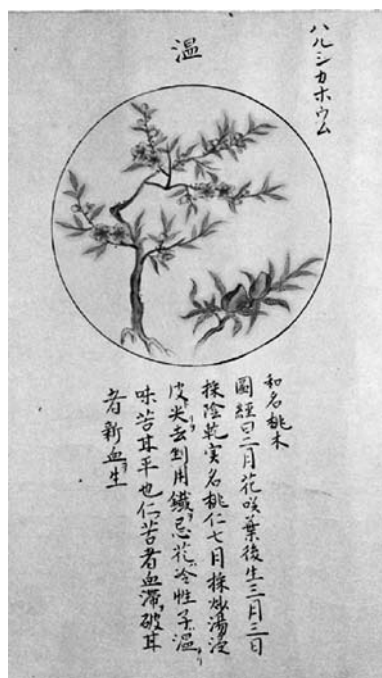 ハルシカホウム
溫
和名桃木
圖經曰二月花咲葉後生三月三日
採陰乾実名桃仁七月採炒湯浸
皮尖去剉用鐵ヲ忌花冷性子溫ナリ
味苦甘平也仁苦者血滯ヲ破甘
者新血ヲ生